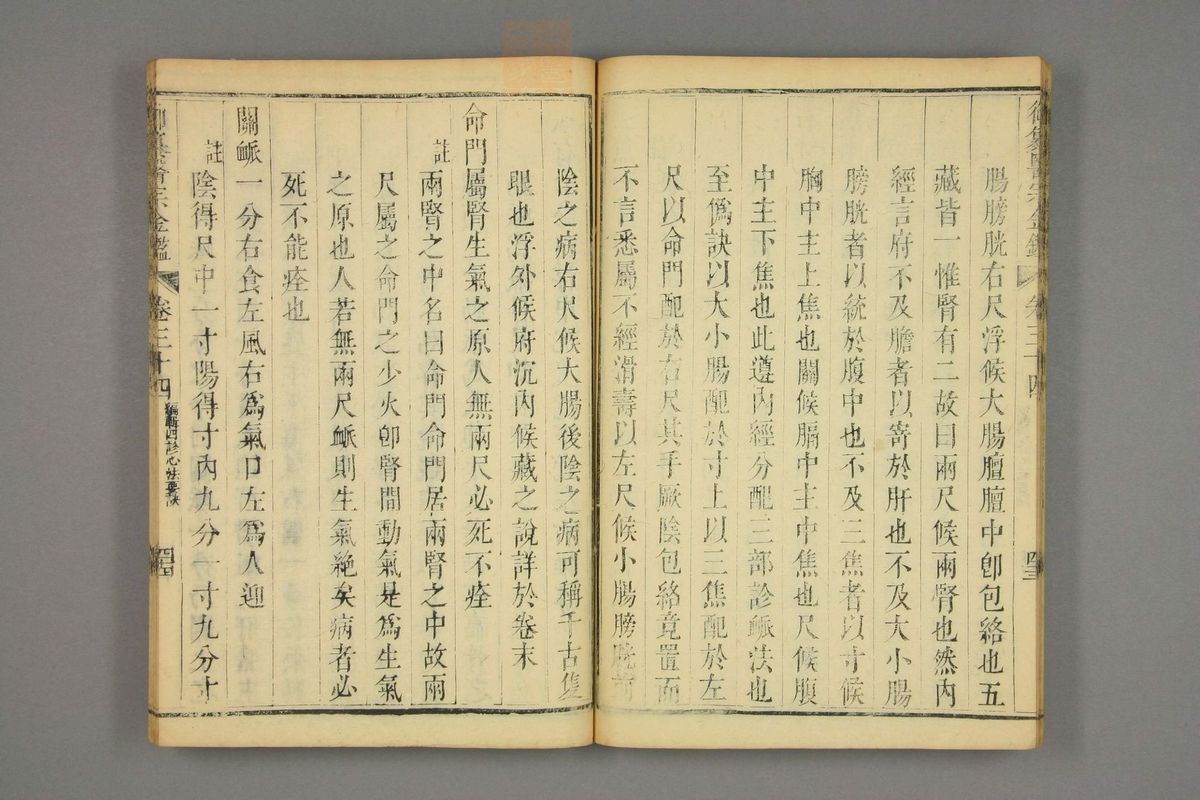 御纂醫宗金鑑 卷三十四 四三
腸膀胱右尺浮候大腸膻膻中卽包絡也五
藏皆一惟腎有二故曰兩尺候兩腎也然內
經言府不及膽者以寄於肝也不及大小腸
膀胱者以統於腹中也不及三焦者以寸候
胸中主上焦也關候膈中主中焦也尺候腹
中主下焦也此遵內經分配三部診脈法也
至僞訣以大小腸配於寸上以三焦配於左
尺以命門配於右尺其手厥陰包絡竟置而
不言悉屬不經滑壽以左尺候小腸膀胱前
陰之病右尺候大腸後陰之病可稱千古隻
眼也浮外候府沉內候藏之說詳於卷末
命門屬腎生氣之原人無兩尺必死不痊
註兩腎之中名曰命門命門居兩腎之中故兩
尺屬之命門之少火卽腎間動氣是爲生氣
之原也人若無兩尺脈則生氣絶矣病者必
死不能痊也
關脈一分右食左風右爲氣口左爲人迎
註陰得尺中一寸陽得寸內九分一寸九分寸
御纂醫宗金鑑 卷三十四 編輯四診心法要訣